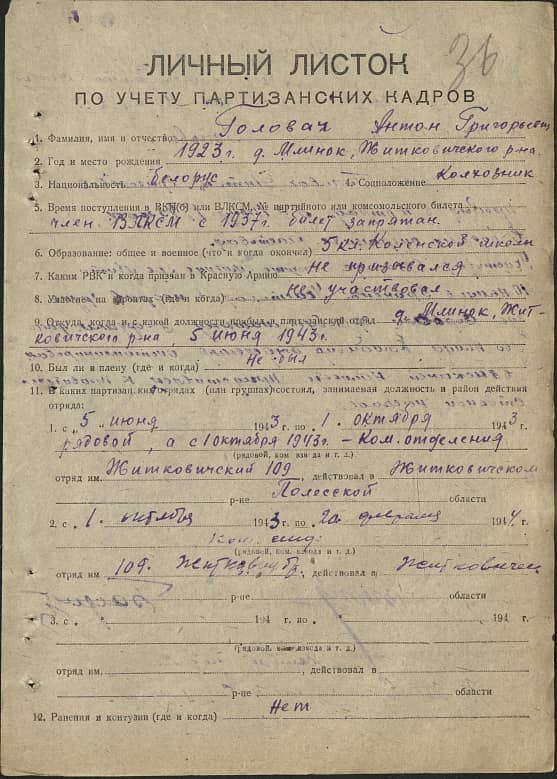 36
ЛИЧНЫЙ ЛИСТОК
ПО УЧЕТУ ПАРТИЗАНСКИХ КАДРОВ
1. Фамилия, имя и отчество Головач Антон Григорьевич
2. Год и место рождения 1923 г. д. Млинок, Житковичского р-на
3. Национальность белорус 4. Соцположение Колхозник
5. Время поступления в ВКП(б) или ВЛКСМ, № партийного или комсомольского билета
член ВЛКСМ с 1937г. билет запрятан.
6. Образование: общее и военное (что и когда окончил) 5 кл. школы
7. Каким РВК и когда призван в Красную Армию Не призывался
8. Участие на фронтах (где и когда) Не участвовал
9. Откуда, когда и с какой должности прибыл в партизанский отряд д. Млинок, Жит-
ковичского р-на, 5 июня 1943 г.
10. Был ли в плену (где и когда) Не был
11. В каких партизан. отрядах (или группах) состоял, занимаемая должность и район действия
отряда:
1. с 5 июня 1943 г. по 1 октября 1943
рядовой, а с 1 октября 1943г. – Ком. отделения
(рядовой, ком. взвода и т. д.)
отряд им. Житковичский 109, действовал в Житковичском
р-не Полесской области
2. с 1. октября 1943 г. по 20 февраля 1944 г.
Ком. отд.
(рядовой, ком. взвода и т. д.)
отряд им 109. действовал в
р-не области
3. с 194 г. по 194 г.
(рядовой, ком. взвода и т. д.)
отряд им. действовал в
р-не области
12. Ранения и контузии (где и когда) Нет